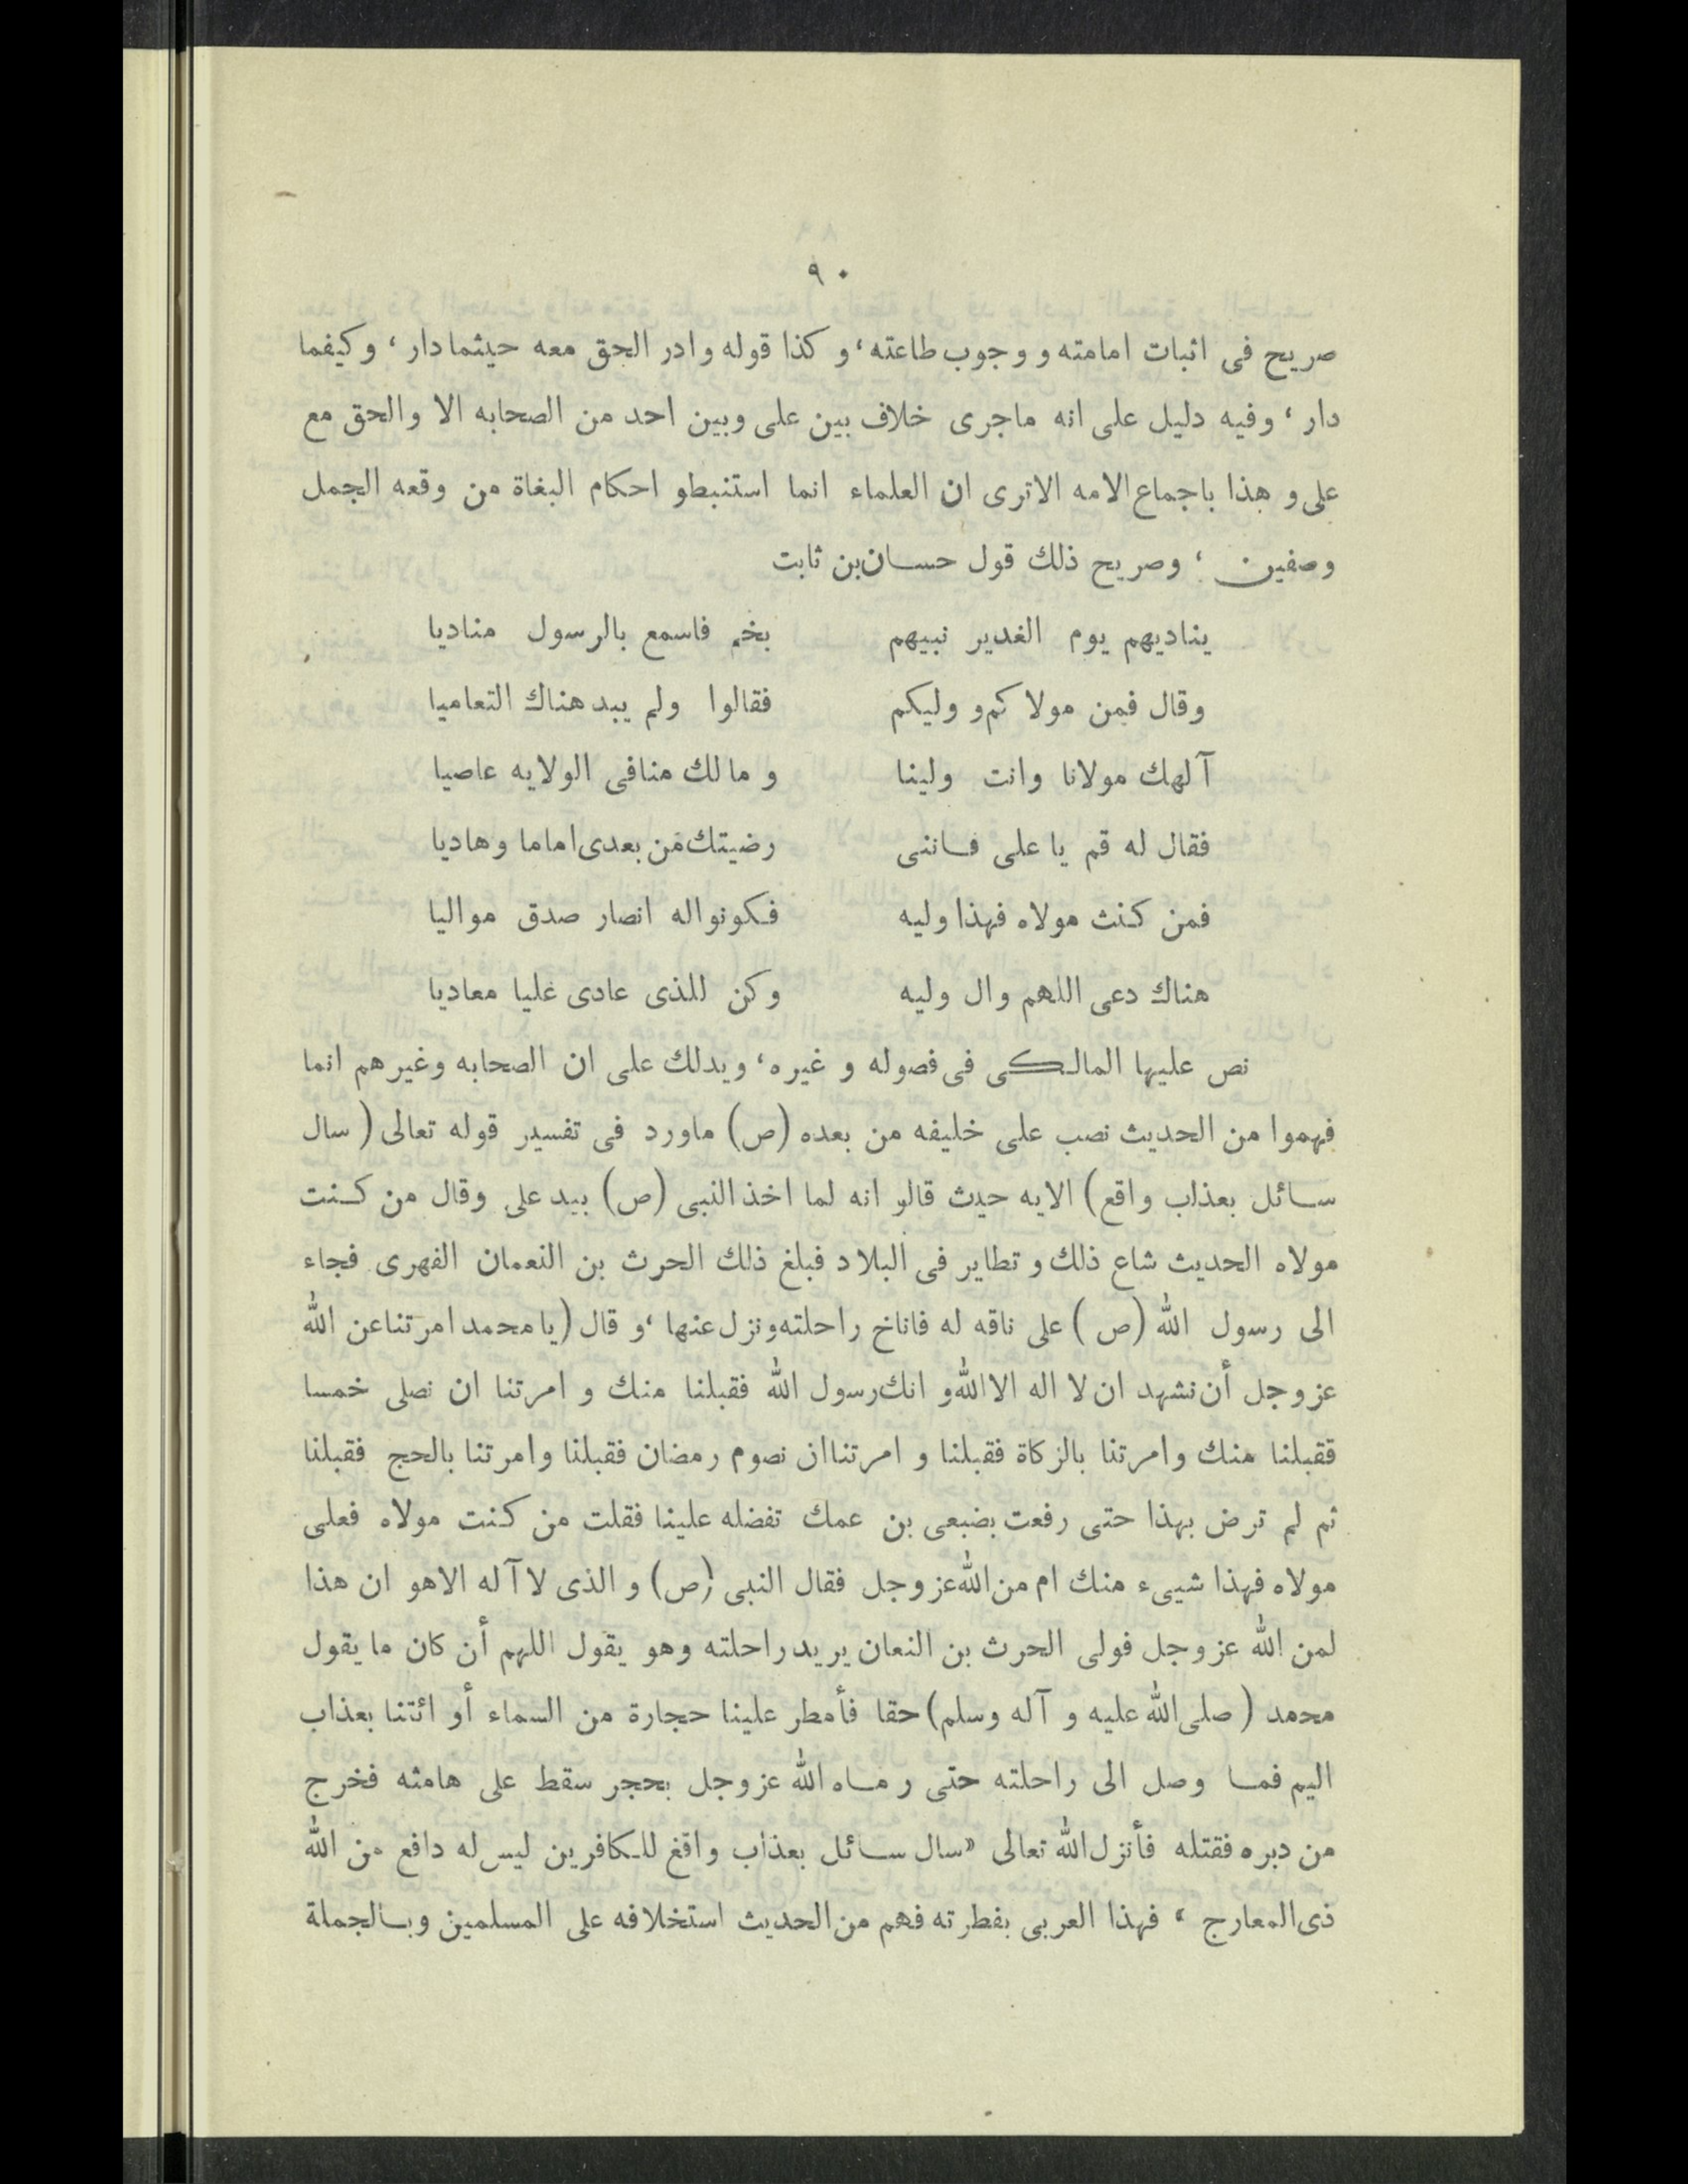 ٩٠
صريح فى اثبات امامته و وجوب طاعته، و كذا قوله وادر الحق معه حيثما دار، وكيفما
دار، وفيه دليل على انه ماجرى خلاف بين على وبين احد من الصحابه الا والحق مع
على و هذا باجماع الامه الاترى ان العلماء انما استنبطو احكام البغاة من وقعه الجمل
وصفين، وصريح ذلك قول حسان بن ثابت
يناديهم يوم الغدير نبيهم بخم فاسمع بالرسول مناديا
وقال فمن مولاكم و وليكم فقالوا ولم يبد هناك التعاميا
آلهك مولانا وانت ولينا و مالك منافى الولايه عاصيا
فقال له قم يا على فاننى رضيتك من بعدى اماما وهاديا
فمن كنث مولاه فهذا وليه فكونواله انصار صدق مواليا
هناك دعى اللهم وال وليه وكن للذى عادى عليا معاديا
نص عليها المالكى فى فصوله و غيره، ويدلك على ان الصحابه وغيرهم انما
فهموا من الحديث نصب على خليفه من بعده (ص) ماورد فى تفسير قوله تعالى (سال
سائل بعذاب واقع) الايه حيث قالو انه لما اخذ النبى (ص) بيد على وقال من كنت
مولاه الحديث شاع ذلك و تطاير فى البلاد فبلغ ذلك الحرث بن النعمان الفهرى فجاء
الى رسول الله (ص) على ناقه له فاناخ راحلته ونزل عنها، و قال (يا محمد امرتنا عن الله
عز وجل أن نشهد ان لا اله الا الله و انك رسول الله فقبلنا منك و امرتنا ان نصلى خمسا
فقبلنا منك وامرتنا بالزكاة فقبلنا و امرتنا ان نصوم رمضان فقبلنا وامرتنا بالحج فقبلنا
ثم لم ترض بهذا حتى رفعت بضبعى بن عمك تفضله علينا فقلت من كنت مولاه فعلى
مولاه فهذا شيىء منك ام من الله عز وجل فقال النبى (ص) و الذى لا آله الاهو ان هذا
لمن الله عز وجل فولى الحرث بن النعان يريد راحلته وهو يقول اللهم أن كان ما يقول
محمد (صلى الله عليه و آله وسلم) حقا فأمطر علينا حجارة من السماء أو ائتنا بعذاب
اليم فما وصل الى راحلته حتى رماه الله عز وجل بحجر سقط على هامثه فخرج
من دبره فقتله فأنزل الله تعالى «سال سائل بعذاب واقغ للكافرين ليس له دافع من الله
ذى المعارج، فهذا العربى بفطرته فهم من الحديث استخلافه على المسلمين وبالجملة